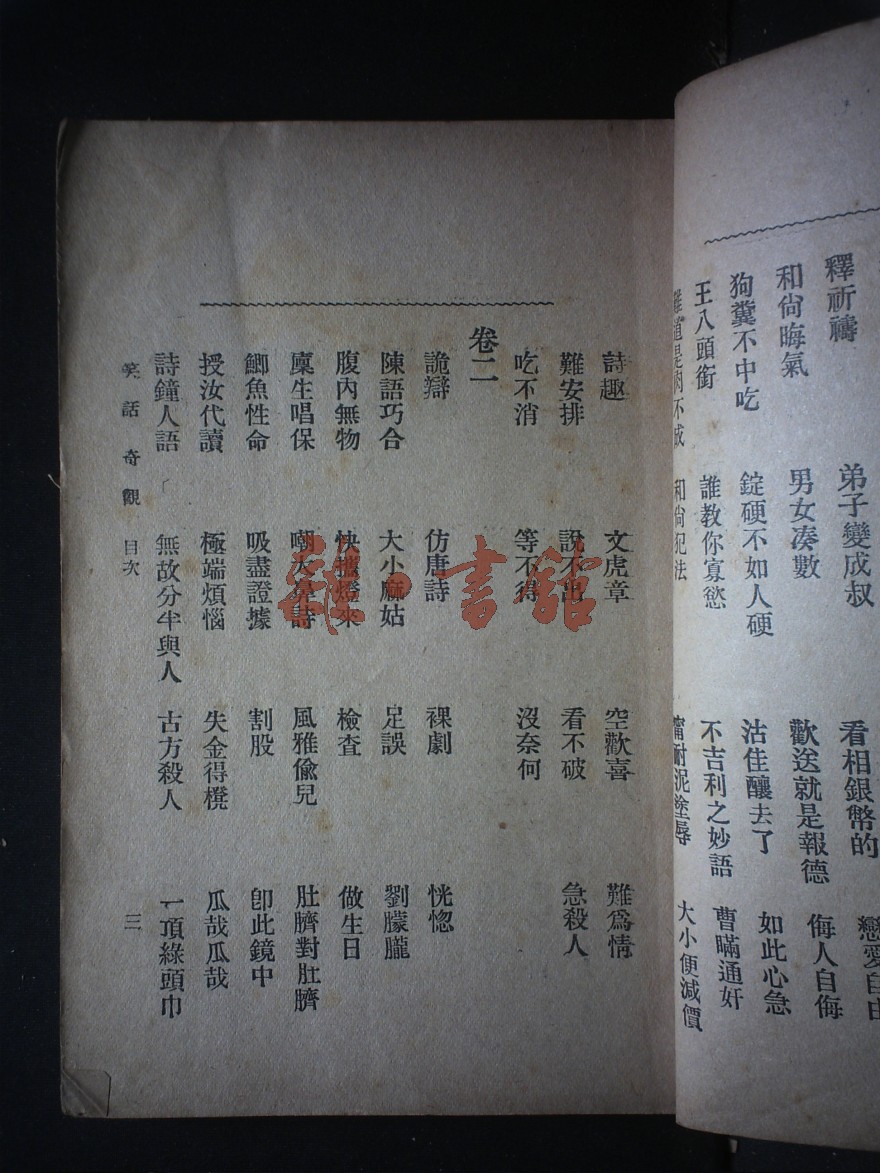 釋祈禱 弟子變成叔 看相銀幣的 戀愛自由
和尙晦氣 男女凑數 歡送就是報德 侮人自侮
狗糞不中吃 錠硬不如人硬 沽佳釀去了 如此心急
王八頭銜 誰教你寡慾 不吉利之妙語 曹瞞通奸
道是肉不成 和尙犯法 甯耐泥塗辱 大小便減價
詩趣 文虎章 空歡喜 難爲情
難安排 說不出 看不破 急殺人
吃不消 等不得 沒奈何
卷二
詭辯 仿唐詩 裸劇 恍惚
陳語巧合 大小麻姑 足誤 劉朦朧
腹內無物 快攜燈來 檢查 做生日
廩生唱保 嘲大鼻詩 風雅偸兒 肚臍對肚臍
鯽魚性命 吸盡證據 割股 卽此鏡中
授汝代讀 極端煩惱 失金得櫈 瓜哉瓜哉
詩鐘人語 無故分半與人 古方殺人 一頂綠頭巾
笑話奇觀 目次 三
雜·書館